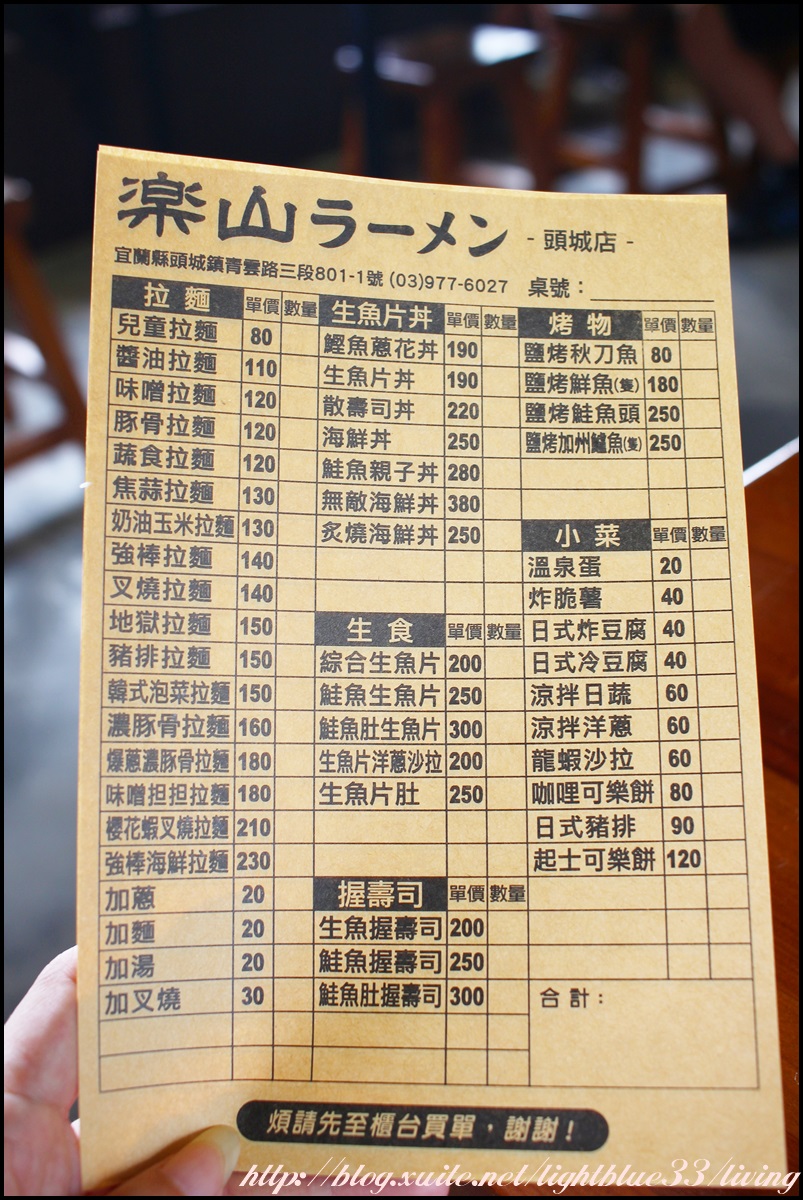 楽山ラーメン - 頭城店 -
宜蘭縣頭城鎮青雲路三段801-1號 (03)977-6027 桌號：
拉麵 單價 數量
兒童拉麵 80
醬油拉麵 110
味噌拉麵 120
豚骨拉麵 120
蔬食拉麵 120
焦蒜拉麵 130
奶油玉米拉麵 130
強棒拉麵 140
叉燒拉麵 140
地獄拉麵 150
豬排拉麵 150
韓式泡菜拉麵 150
濃豚骨拉麵 160
爆蔥濃豚骨拉麵 180
味噌担担拉麵 180
櫻花蝦叉燒拉麵 210
強棒海鮮拉麵 230
加蔥 20
加麵 20
加湯 20
加叉燒 30
生魚片丼 單價 數量
鰹魚蔥花丼 190
生魚片丼 190
散壽司丼 220
海鮮丼 250
鮭魚親子丼 280
無敵海鮮丼 380
炙燒海鮮丼 250
生食 單價 數量
綜合生魚片 200
鮭魚生魚片 250
鮭魚肚生魚片 300
生魚片洋蔥沙拉 200
生魚片肚 250
握壽司 單價 數量
生魚握壽司 200
鮭魚握壽司 250
鮭魚肚握壽司 300
烤物 單價 數量
鹽烤秋刀魚 80
鹽烤鮮魚(隻) 180
鹽烤鮭魚頭 250
鹽烤加州鱸魚(隻) 250
小菜 單價 數量
溫泉蛋 20
炸脆薯 40
日式炸豆腐 40
日式冷豆腐 40
涼拌日蔬 60
涼拌洋蔥 60
龍蝦沙拉 60
咖哩可樂餅 80
日式豬排 90
起士可樂餅 120
合計：
煩請先至櫃台買單，謝謝！
http://blog.xuite.net/lightblue33/living